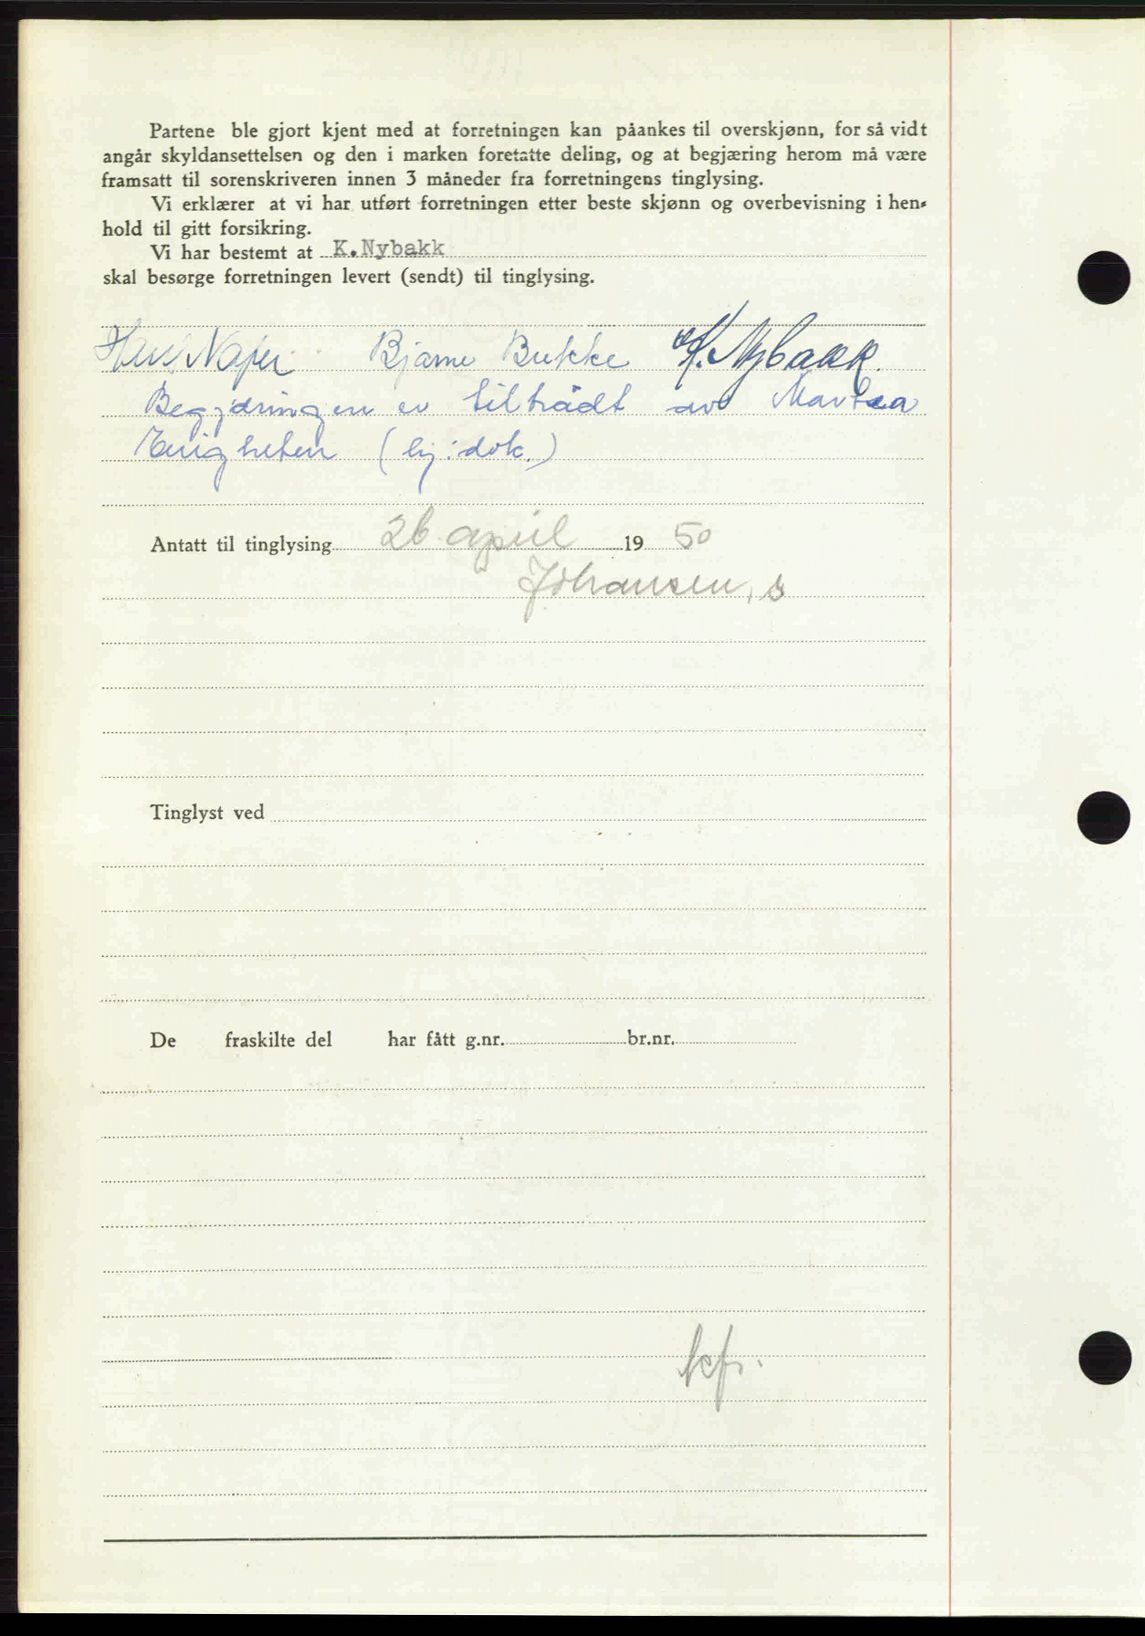 Partene ble gjort kjent med at forretningen kan påankes til overskjønn, for så vidt
angår skyldansettelsen og den i marken foretatte deling, og at begjæring herom må være
framsatt til sorenskriveren innen 3 måneder fra forretningens tinglysing.
Vi erklærer at vi har utført forretningen etter beste skjønn og overbevisning i hen-
hold til gitt forsikring.
Vi har bestemt at K.Nybakk
skal besørge forretningen levert (sendt) til tinglysing.
Bjarne Bukke K. Nybakk
Begjæringen er tiltrådt av
(bj: dok.)
Antatt til tinglysing 26 april 19 50
Johansen, s
Tinglyst ved
De fraskilte del har fått g.nr. br.nr.